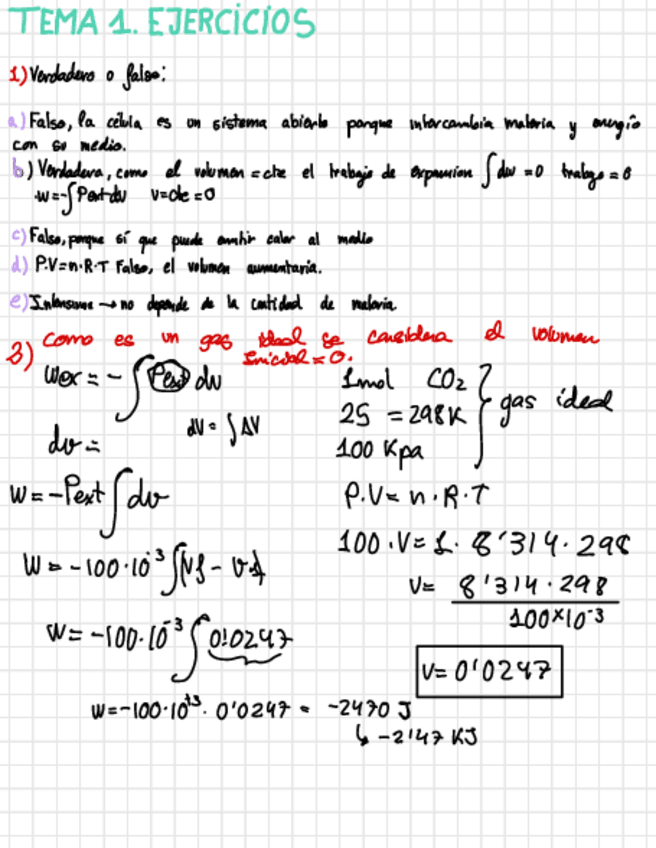 TEMA 1. EJERCICIOS
1) Verdadero o falso:
a) Falso, la célula es un sistema abierto porque intercambia materia y energía
con su medio.
b) Verdadera, como el volumen = cte el trabajo de expansion ∫dw = 0 trabajo = 0
w = -∫Pext·dv v=cte = 0
c) Falso, porque sí que puede emitir calor al medio
d) P.V=n.R.T Falso, el volumen aumentaria.
e) Intensiva → no depende de la cantidad de materia.
3) Como es un gas ideal se considera el volumen
inicial = 0.
Wex = -∫Pext dv
dv =
dV = ∫ΔV
1mol CO2
25 = 298K
100 Kpa
gas ideal
W = -Pext ∫dv
P.V = n.R.T
W = -100·10^-3 ∫Vf - Vi
100.V = 1. 8'314.298
V = 8'314.298
100×10^-3
W = -100·10^-3 ∫0'0247
V = 0'0247
W = -100·10^+3 · 0'0247 = -2470 J
↳ -2'47 KJ